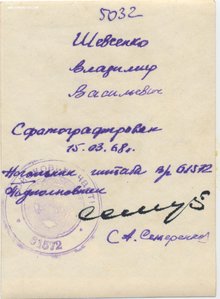 5032
Шевченко
Владимир
Васильевич
Сфотографирован
15.03.68г.
Начальник штаба в/ч 61572
Подполковник
С.А. Семеренко
61572